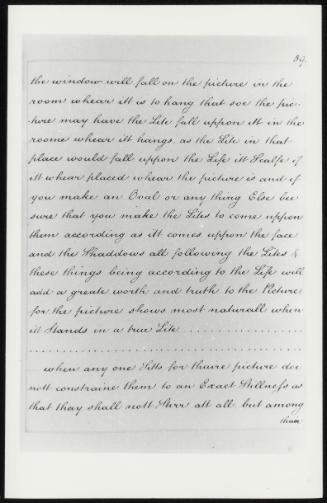 39.
the window will fall on the picture in the
room whear itt is to hang that soe the pic-
ture may have the Lite fall uppon itt in the
roome whear itt hangs, as the Lite in that
place would fall uppon the Life itt Sealfe if
itt whear placed whear the picture is and if
you make an Oval or any thing Else bee
sure that you make the Lites to come uppon
them according as itt comes uppon the face
and the Shaddows all following the Lites &
these things being according to the Life will
add a greate worth and truth to the Picture
for the picture shows most naturall when
itt Stands in a true Lite
when any one Sitts for thaire picture doe
nott constraine them to an Exact Stillness as
that thay shall nott Stirr att all but among